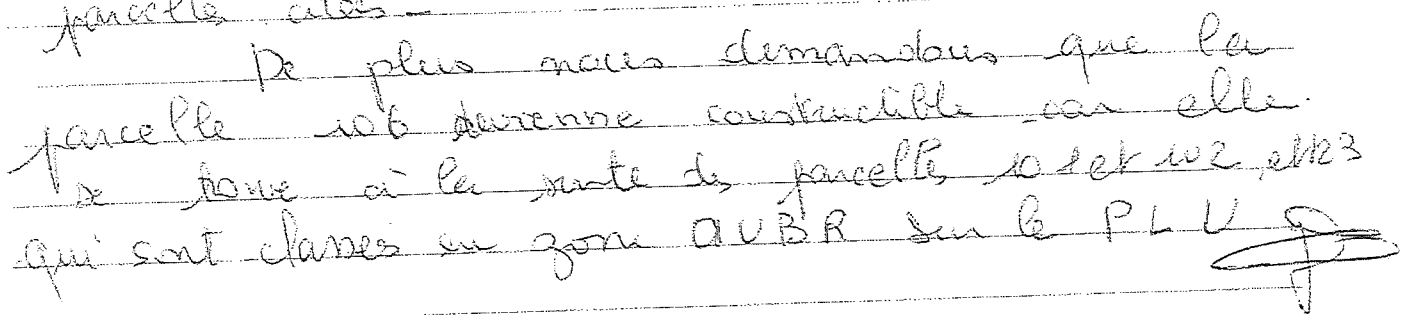 parcelle cités -
De plus nous demandons que la
parcelle 106 devienne constructible car elle
se trouve à la suite des parcelles 101 et 102, et 123
qui sont classés en zone AUBR sur le PLU